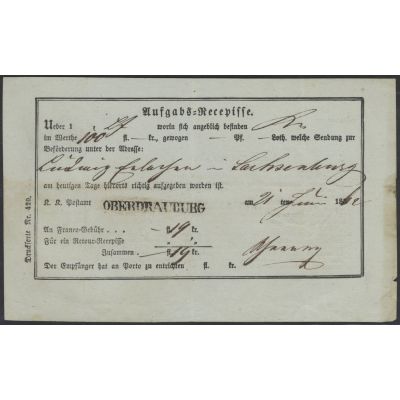 Aufgabs-Recepisse.
Ueber 1 worin sich angeblich befinden
im Werthe 100 fl. — kr., gewogen — Pf. — Loth, welche Sendung zur
Beförderung unter der Adresse:
Ludwig Sachsenburg
am heutigen Tage hierorts richtig aufgegeben worden ist.
K. K. Postamt OBERDRAUBURG am 21 ten Juni 186
An Franco-Gebühr . . . — fl. 19 kr.
Für ein Retour-Recepisse " "
Zusammen . — fl. 19 kr.
Der Empfänger hat an Porto zu entrichten fl. kr.
Drucksorte Nr. 420.